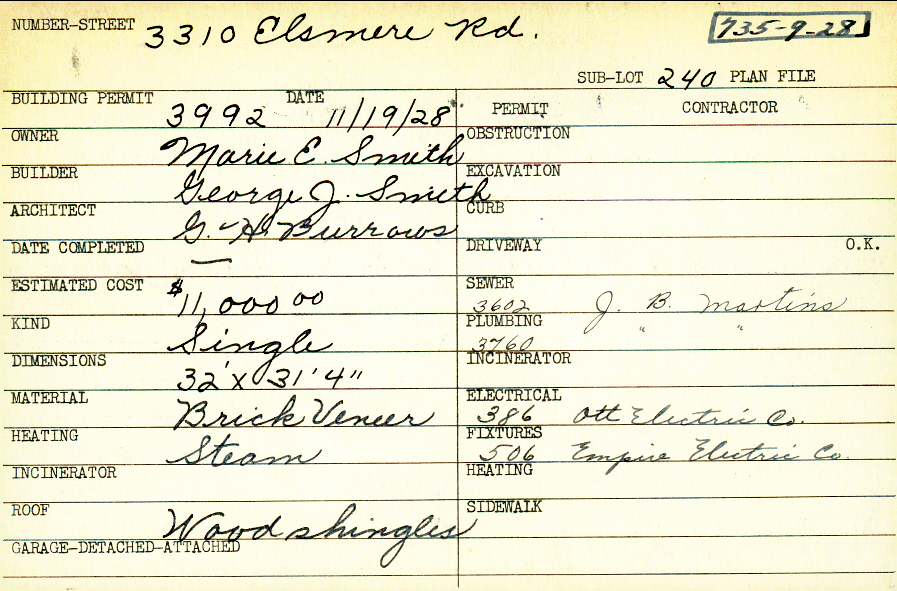 NUMBER-STREET 3310 Elsmere Rd. 735-9-28
SUB-LOT 240 PLAN FILE
BUILDING PERMIT 3992 DATE 11/19/28
PERMIT CONTRACTOR
OWNER Marie E. Smith
OBSTRUCTION
BUILDER George J. Smith
EXCAVATION
ARCHITECT G. H. Burrows
CURB
DATE COMPLETED —
DRIVEWAY O.K.
ESTIMATED COST $11,000 00
SEWER 3602 J. B. Martins
KIND Single
PLUMBING 3760 " "
DIMENSIONS 32' x 31' 4"
INCINERATOR
MATERIAL Brick Veneer
ELECTRICAL 386 Ott Electric Co.
HEATING Steam
FIXTURES 506 Empire Electric Co.
INCINERATOR
HEATING
ROOF Wood shingles
SIDEWALK
GARAGE-DETACHED-ATTACHED